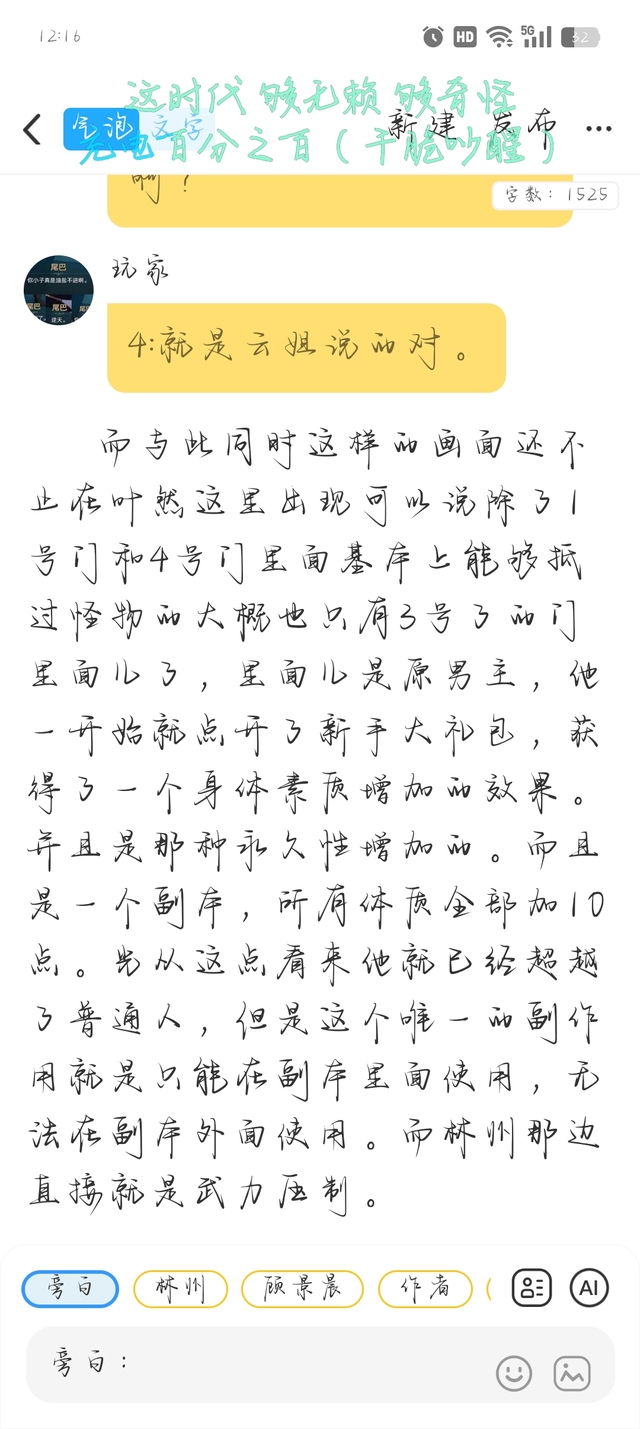 12:16
HD 5G 32
这时代 够无赖 够奇怪
充电百分之百（干脆吵醒）
气泡 文字 新建 发布
啊？
字数：1525
玩家
尾巴
你小子真是油盐不进啊。
尾巴
4:就是云姐说的对。
而与此同时这样的画面还不
止在叶然这里出现可以说除了1
号门和4号门里面基本上能够抵
过怪物的大概也只有3号了的门
里面儿了，里面儿是原男主，他
一开始就点开了新手大礼包，获
得了一个身体素质增加的效果。
并且是那种永久性增加的。而且
是一个副本，所有体质全部加10
点。光从这点看来他就已经超越
了普通人，但是这个唯一的副作
用就是只能在副本里面使用，无
法在副本外面使用。而林州那边
直接就是武力压制。
旁白 林州 顾景晨 作者
AI
旁白：